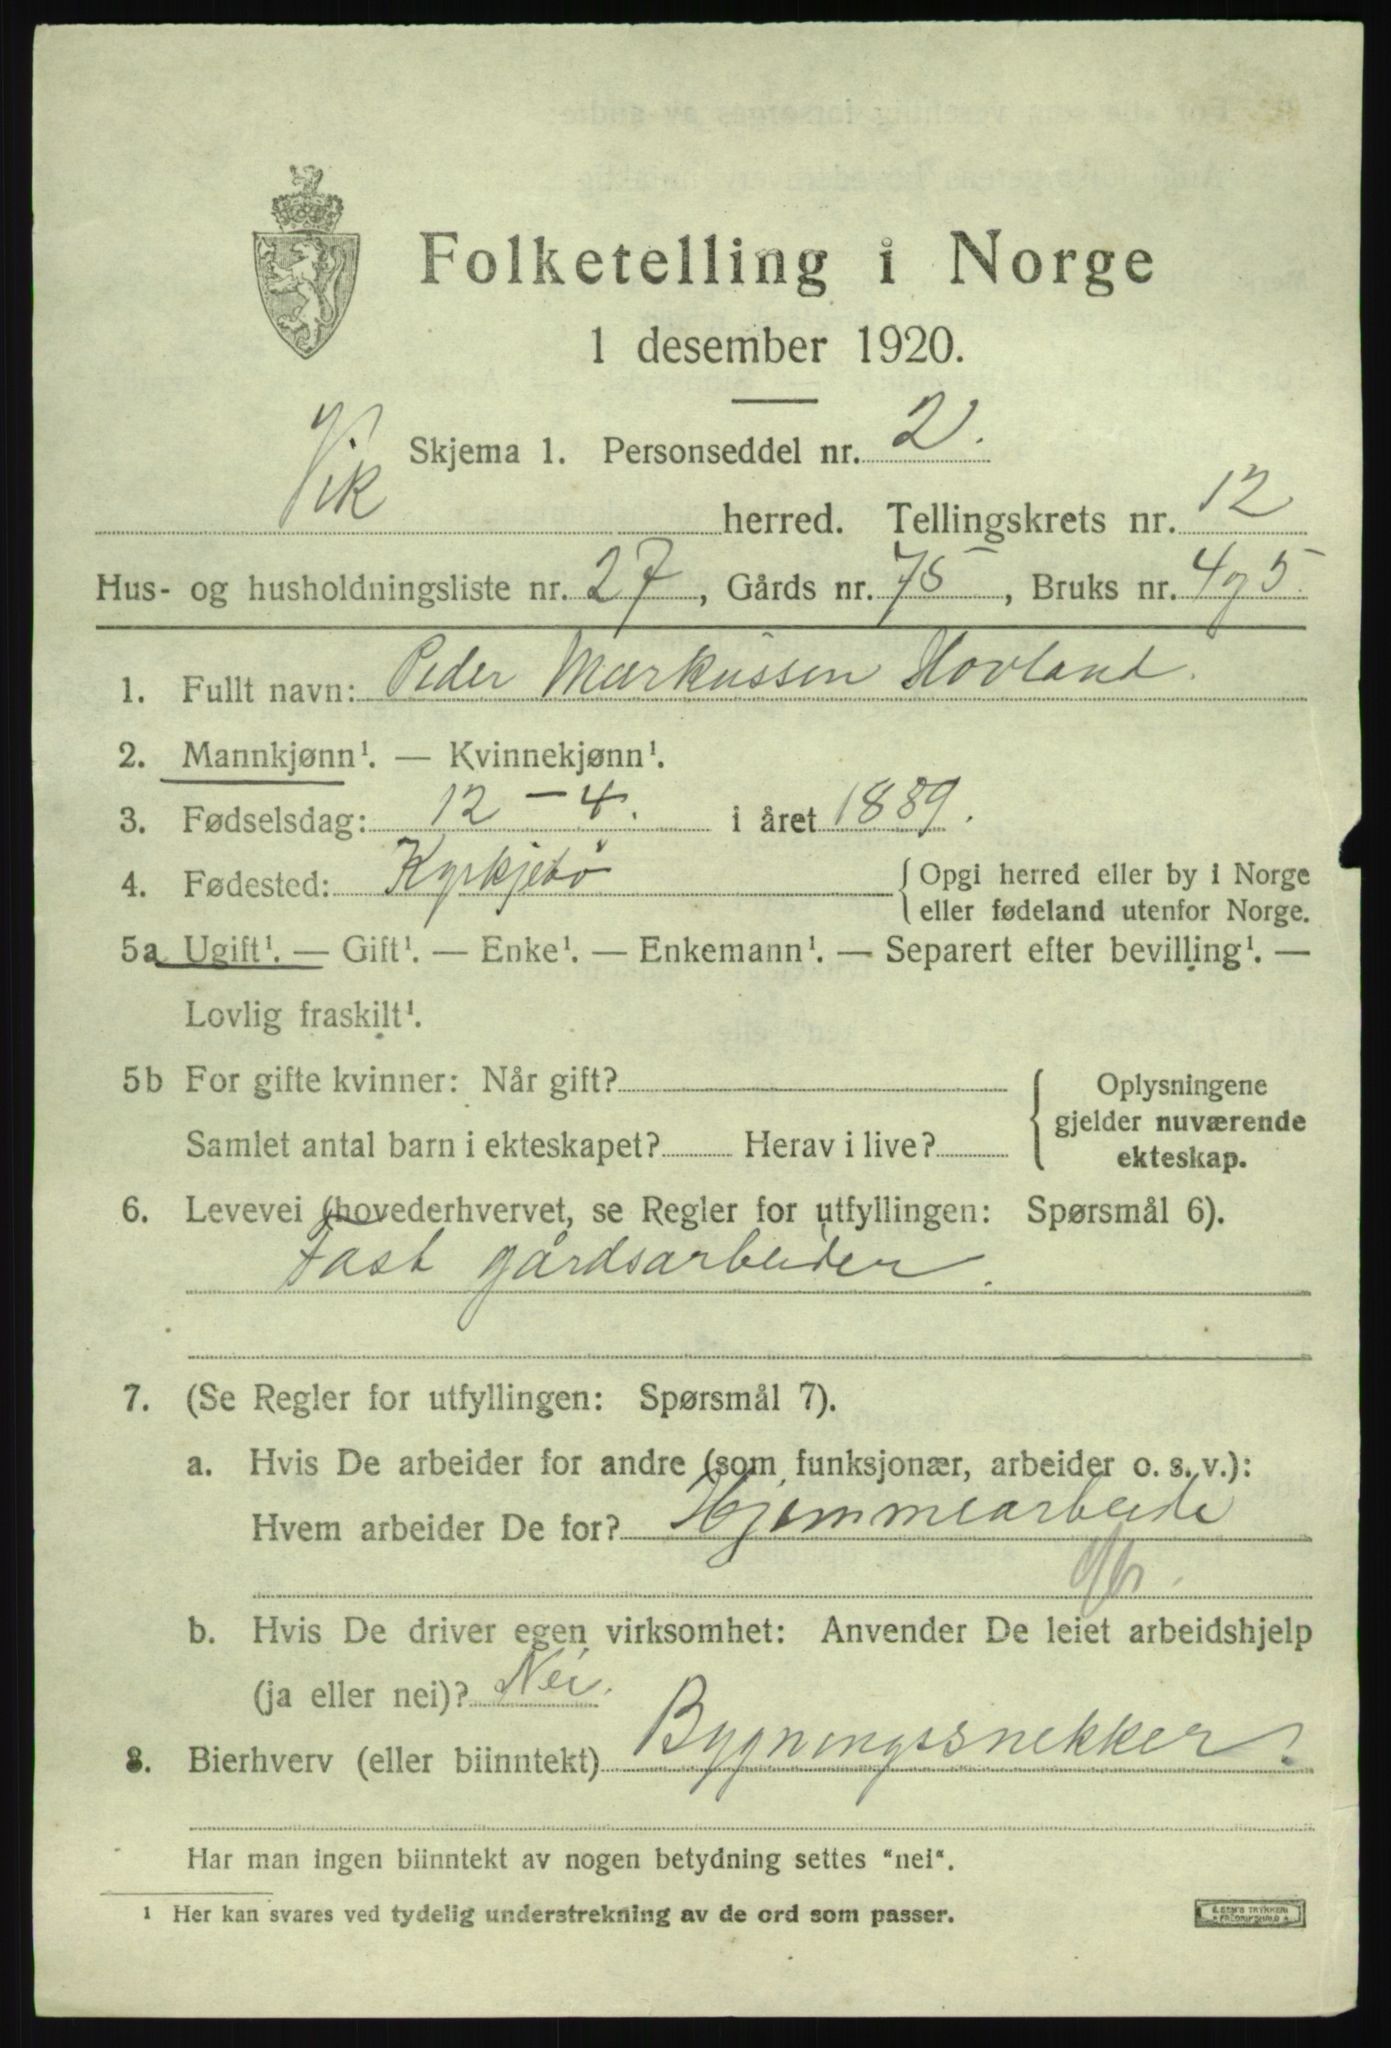 Folketelling i Norge
1 desember 1920.
Skjema 1. Personseddel nr. 2.
Vik herred. Tellingskrets nr. 12
Hus- og husholdningsliste nr. 27, Gårds nr. 75, Bruks nr. 4 og 5
1. Fullt navn: Peder Markussen Hovland.
2. Mannkjønn¹. — Kvinnekjønn¹.
3. Fødselsdag: 12 – 4. i året 1889.
4. Fødested: Kyrkjebö { Opgi herred eller by i Norge
eller fødeland utenfor Norge.
5a Ugift¹. — Gift¹. — Enke¹. — Enkemann¹. — Separert efter bevilling¹. —
Lovlig fraskilt¹.
5b For gifte kvinner: Når gift? { Oplysningene
gjelder nuværende
Samlet antal barn i ekteskapet? Herav i live?
ekteskap.
6. Levevei (hovederhvervet, se Regler for utfyllingen: Spørsmål 6).
Fast gårdsarbeider.
7. (Se Regler for utfyllingen: Spørsmål 7).
a. Hvis De arbeider for andre (som funksjonær, arbeider o. s. v.):
Hvem arbeider De for? Hjemmearbeide
b. Hvis De driver egen virksomhet: Anvender De leiet arbeidshjelp
(ja eller nei)? Nei.
8. Bierhverv (eller biinntekt) Bygningssnekker.
Har man ingen biinntekt av nogen betydning settes "nei".
¹ Her kan svares ved tydelig understrekning av de ord som passer.
E. SEM'S TRYKKERI
FREDRIKSHALD